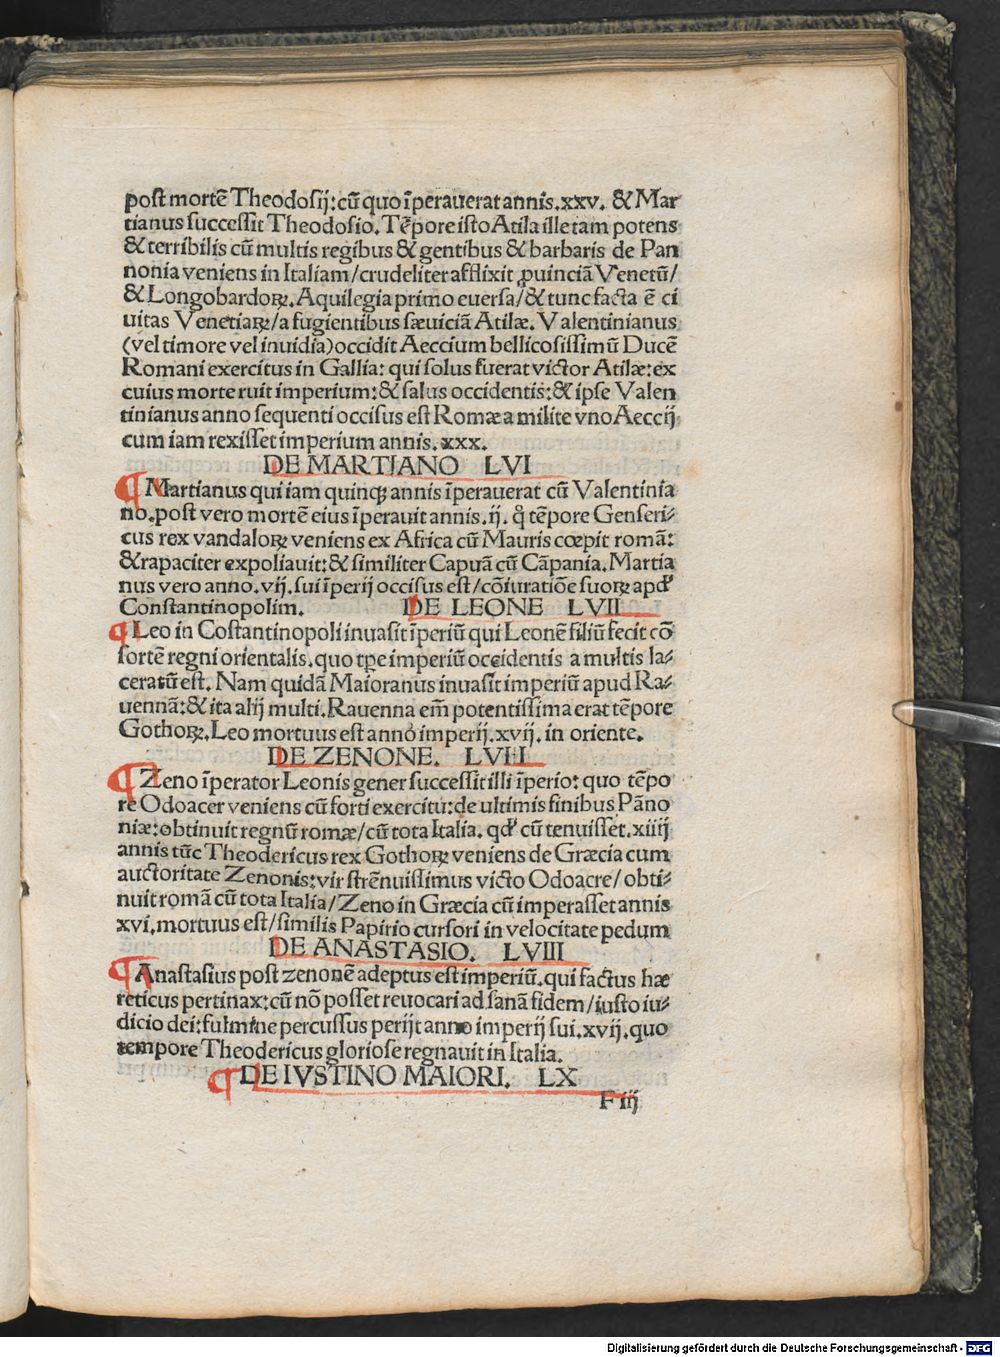 post mortē Theodosij: cū quo īperauerat annis. xxv. & Mar
tianus successit Theodosio. Tēpore isto Atila ille tam potens
& terribilis cū multis regibus & gentibus & barbaris de Pan
nonia veniens in Italiam/ crudeliter afflixit ꝓuinciā Venetū/
& Longobardoꝝ. Aquilegia primo euersa/ & tunc facta ē ci
uitas Venetiaꝝ/ a fugientibus sæuiciā Atilæ. Valentinianus
(vel timore vel inuidia) occidit Aeccium bellicosissimū Ducē
Romani exercitus in Gallia: qui solus fuerat victor Atilæ: ex
cuius morte ruit imperium: & salus occidentis: & ipse Valen
tinianus anno sequenti occisus est Romæ a milite vno Aeccij
cum iam rexisset imperium annis. xxx.
DE MARTIANO LVI
¶ Martianus qui iam quinqꝫ annis īperauerat cū Valentinia
no. post vero mortē eius īperauit annis. ij. q̄ tēpore Genseri-
cus rex vandaloꝝ veniens ex Africa cū Mauris cœpit romā:
& rapaciter expoliauit: & similiter Capuā cū Cāpania. Martia
nus vero anno. vij. sui īperij occisus est/ cōiuratiōe suoꝝ apď
Constantinopolim. DE LEONE LVII
¶ Leo in Costantinopoli inuasit īperiū qui Leonē filiū fecit cō
sortē regni orientalis. quo tꝑe imperiū occidentis a multis la-
ceratū est. Nam quidā Maioranus inuasit imperiū apud Ra-
uennā: & ita alij multi. Rauenna em̄ potentissima erat tēpore
Gothoꝝ. Leo mortuus est anno imperij. xvij. in oriente.
DE ZENONE. LVIII
¶ Zeno īperator Leonis gener successit illi īperio: quo tēpo
re Odoacer veniens cū forti exercitu: de ultimis finibus Pāno
niæ: obtinuit regnū romæ/ cū tota Italia. qď cū tenuisset. xiiij
annis tūc Theodericus rex Gothoꝝ veniens de Græcia cum
auctoritate Zenonis: vir strēnuissimus victo Odoacre/ obti-
nuit romā cū tota Italia/ Zeno in Græcia cū imperasset annis
xvi. mortuus est/ similis Papirio cursori in velocitate pedum
DE ANASTASIO. LVIII
¶ Anastasius post zenonē adeptus est imperiū. qui factus hæ
reticus pertinax: cū nō posset reuocari ad sanā fidem/ iusto iu-
dicio dei: fulmine percussus perijt anno imperij sui. xvij. quo
tempore Theodericus gloriose regnauit in Italia.
¶ DE IVSTINO MAIORI. LX
F iij
Digitalisierung gefördert durch die Deutsche Forschungsgemeinschaft - DFG